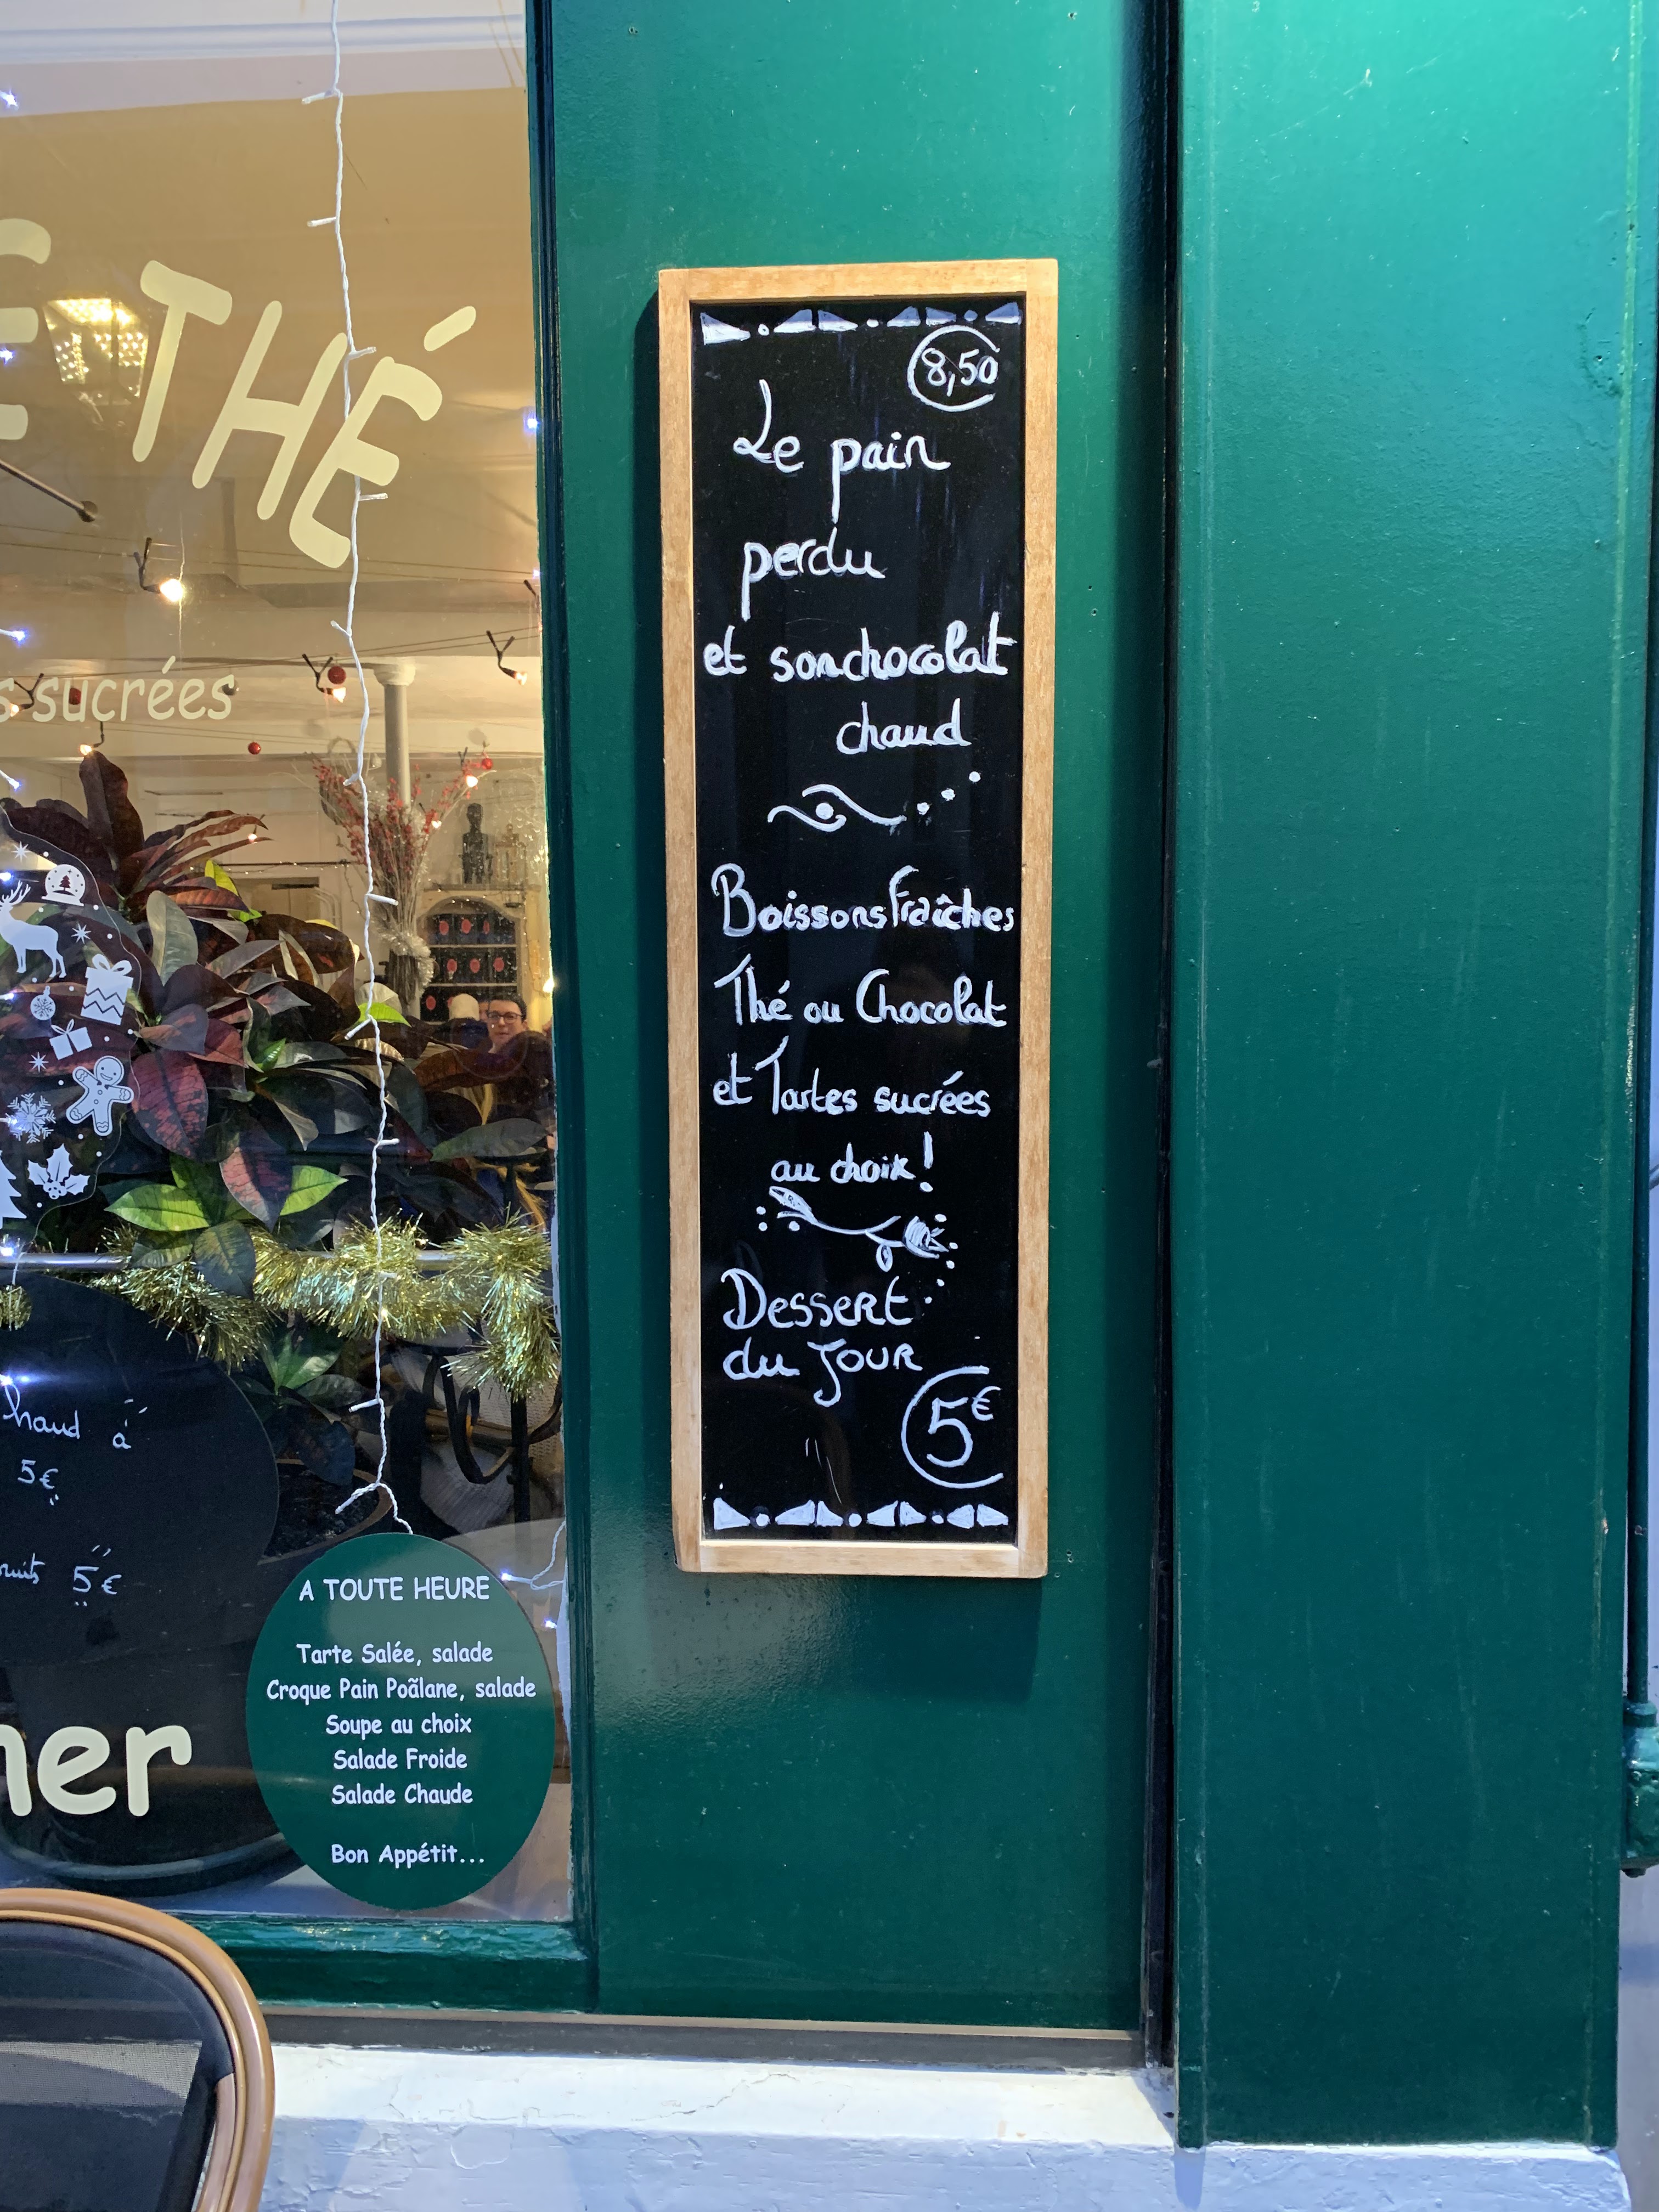 THÉ
sucrées
8,50
Le pain
perdu
et son chocolat
chaud
Boissons Fraîches
Thé ou Chocolat
et Tartes sucrées
au choix!
Dessert
du Jour
5€
à
5€
5€
A TOUTE HEURE
Tarte Salée, salade
Croque Pain Poãlane, salade
Soupe au choix
Salade Froide
Salade Chaude
Bon Appétit...